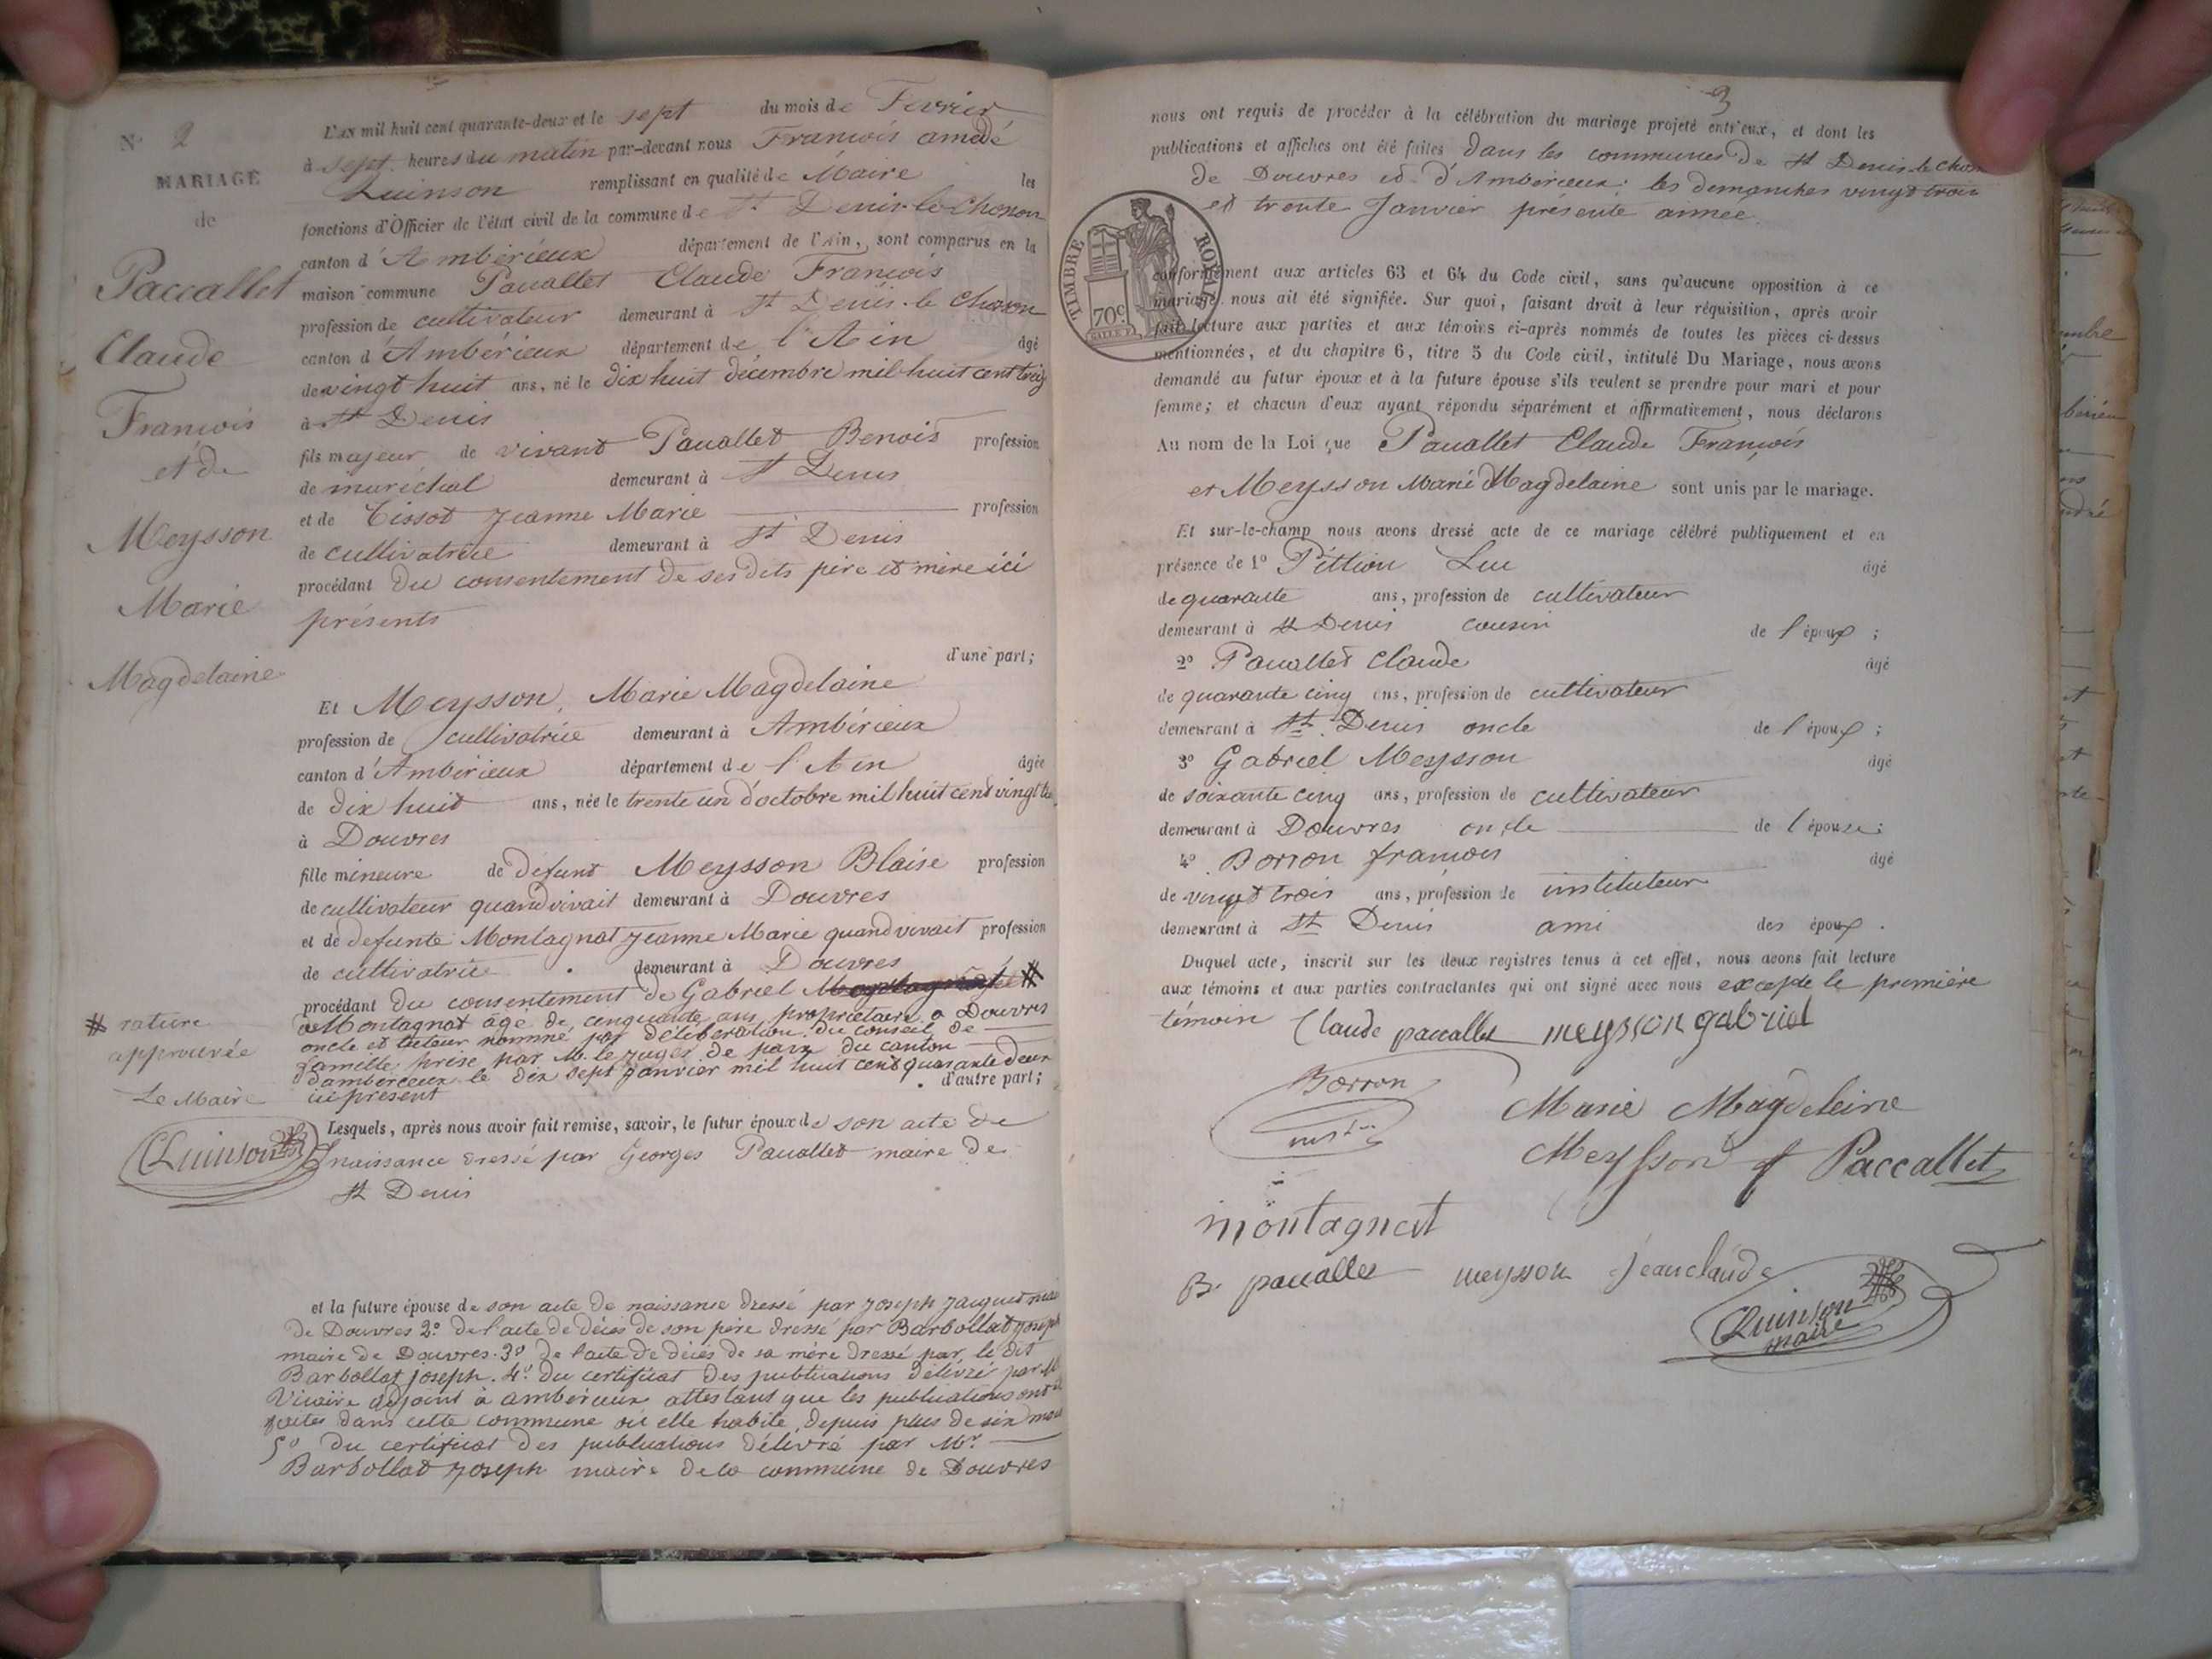 N° 2
MARIAGE
de
Paccallet
Claude
François
et de
Meysson
Marie
Magdelaine
L'an mil huit cent quarante-deux et le sept du mois de Fevrier
à sept heures du matin par-devant nous François amedé
Quinson remplissant en qualité de Maire les
fonctions d'Officier de l'état civil de la commune de St Denis-le-Chosson
canton d'Ambérieux département de l'Ain, sont comparus en la
maison commune Paccallet Claude François
profession de cultivateur demeurant à St Denis-le Chosson
canton d'Ambérieux département de l'Ain âgé
de vingt huit ans, né le dix huit décembre mil huit cent treize
à St Denis
fils majeur de vivant Paccallet Benois profession
de maréchal demeurant à St Denis
et de Tissot Jeanne Marie profession
de cultivatrice demeurant à St Denis
procédant du consentement de ses dits père et mère ici
présents
d'une part;
Et Meysson, Marie Magdelaine
profession de cultivatrice demeurant à Ambérieux
canton d'Ambérieux département de l'Ain âgée
de dix huit ans, née le trente un d'octobre mil huit cent vingt
à Douvres
fille mineure de defunt Meysson Blaise profession
de cultivateur quand vivait demeurant à Douvres
et de defunte Montagnat Jeanne Marie quand vivait profession
de cultivatrice demeurant à Douvres
procédant du consentement de Gabriel #
Montagnat âgé de cinquante ans propriétaire a Douvres
oncle et tuteur nommé par délibération du conseil de
famille prise par M. le juges de paix du canton
d'amberieux le dix sept janvier mil huit cent quarante deux
ici présent d'autre part;
# rature
approuvée
Le Maire
Quinson
Lesquels, après nous avoir fait remise, savoir, le futur époux de son acte de
naissance dressé par Georges Paccallet maire de
St Denis
et la future épouse de son acte de naissance dressé par Joseph Jacquet
de Douvres 2° de l'acte de décès de son père dressé par Barbollat joseph
maire de Douvres. 3° de l'acte de décès de sa mère dressé par le dit
Barbollat joseph. 4° du certificat des publications délivré par M
Vicaire adjoint à amberieux attestant que les publications ont
faites dans cette commune où elle habite depuis plus de six mois
5° du certificat des publications délivré par Mr
Barbollat Joseph maire de la commune de Douvres
3
nous ont requis de procéder à la célébration du mariage projeté entr'eux, et dont les
publications et affiches ont été faites dans les communes de St Denis-le-Chosson
de Douvres et d'Ambérieux; les dimanches vingt trois
et trente Janvier présente année
TIMBRE ROYAL
70c.
conformément aux articles 63 et 64 du Code civil, sans qu'aucune opposition à ce
mariage nous ait été signifiée. Sur quoi, faisant droit à leur réquisition, après avoir
fait lecture aux parties et aux témoins ci-après nommés de toutes les pièces ci-dessus
mentionnées, et du chapitre 6, titre 5 du Code civil, intitulé Du Mariage, nous avons
demandé au futur époux et à la future épouse s'ils veulent se prendre pour mari et pour
femme; et chacun d'eux ayant répondu séparément et affirmativement, nous déclarons
Au nom de la Loi que Paccallet Claude François
et Meysson Marie Magdelaine sont unis par le mariage.
Et sur-le-champ nous avons dressé acte de ce mariage célébré publiquement et en
présence de 1° Pittion Luc âgé
de quarante ans, profession de cultivateur
demeurant à St Denis cousin de l'époux;
2° Paccallet Claude âgé
de quarante cinq ans, profession de cultivateur
demeurant à St Denis oncle de l'époux;
3° Gabriel Meysson âgé
de soixante cinq ans, profession de cultivateur
demeurant à Douvres oncle de l'épouse;
4° Borron françois âgé
de vingt trois ans, profession de instituteur
demeurant à St Denis ami des époux.
Duquel acte, inscrit sur les deux registres tenus à cet effet, nous avons fait lecture
aux témoins et aux parties contractantes qui ont signé avec nous excepte le première
témoin Claude paccallet meysson gabriel
Borron
instr
Marie Magdeleine
Meysson f Paccallet
montagnat
B. paccallet meysson jean claude
Quinson
maire